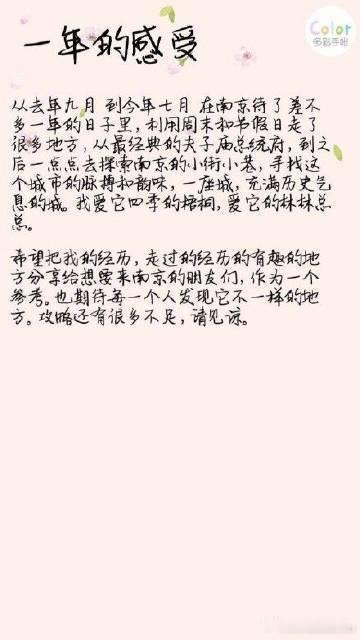 Color
多彩手帐
一年的感受
从去年九月 到今年七月 在南京待了差不
多一年的日子里,利用周末和节假日走了
很多地方,从最经典的夫子庙总统府,到之
后一点点去探索南京的小街小巷,寻找这
个城市的脉搏和韵味,一座城,充满历史气
息的城。我爱它四季的梧桐,爱它的林林总
总。
希望把我的经历,走过的经历的有趣的地
方分享给想要来南京的朋友们,作为一个
参考。也期待每一个人发现它不一样的地
方。攻略还有很多不足,请见谅。